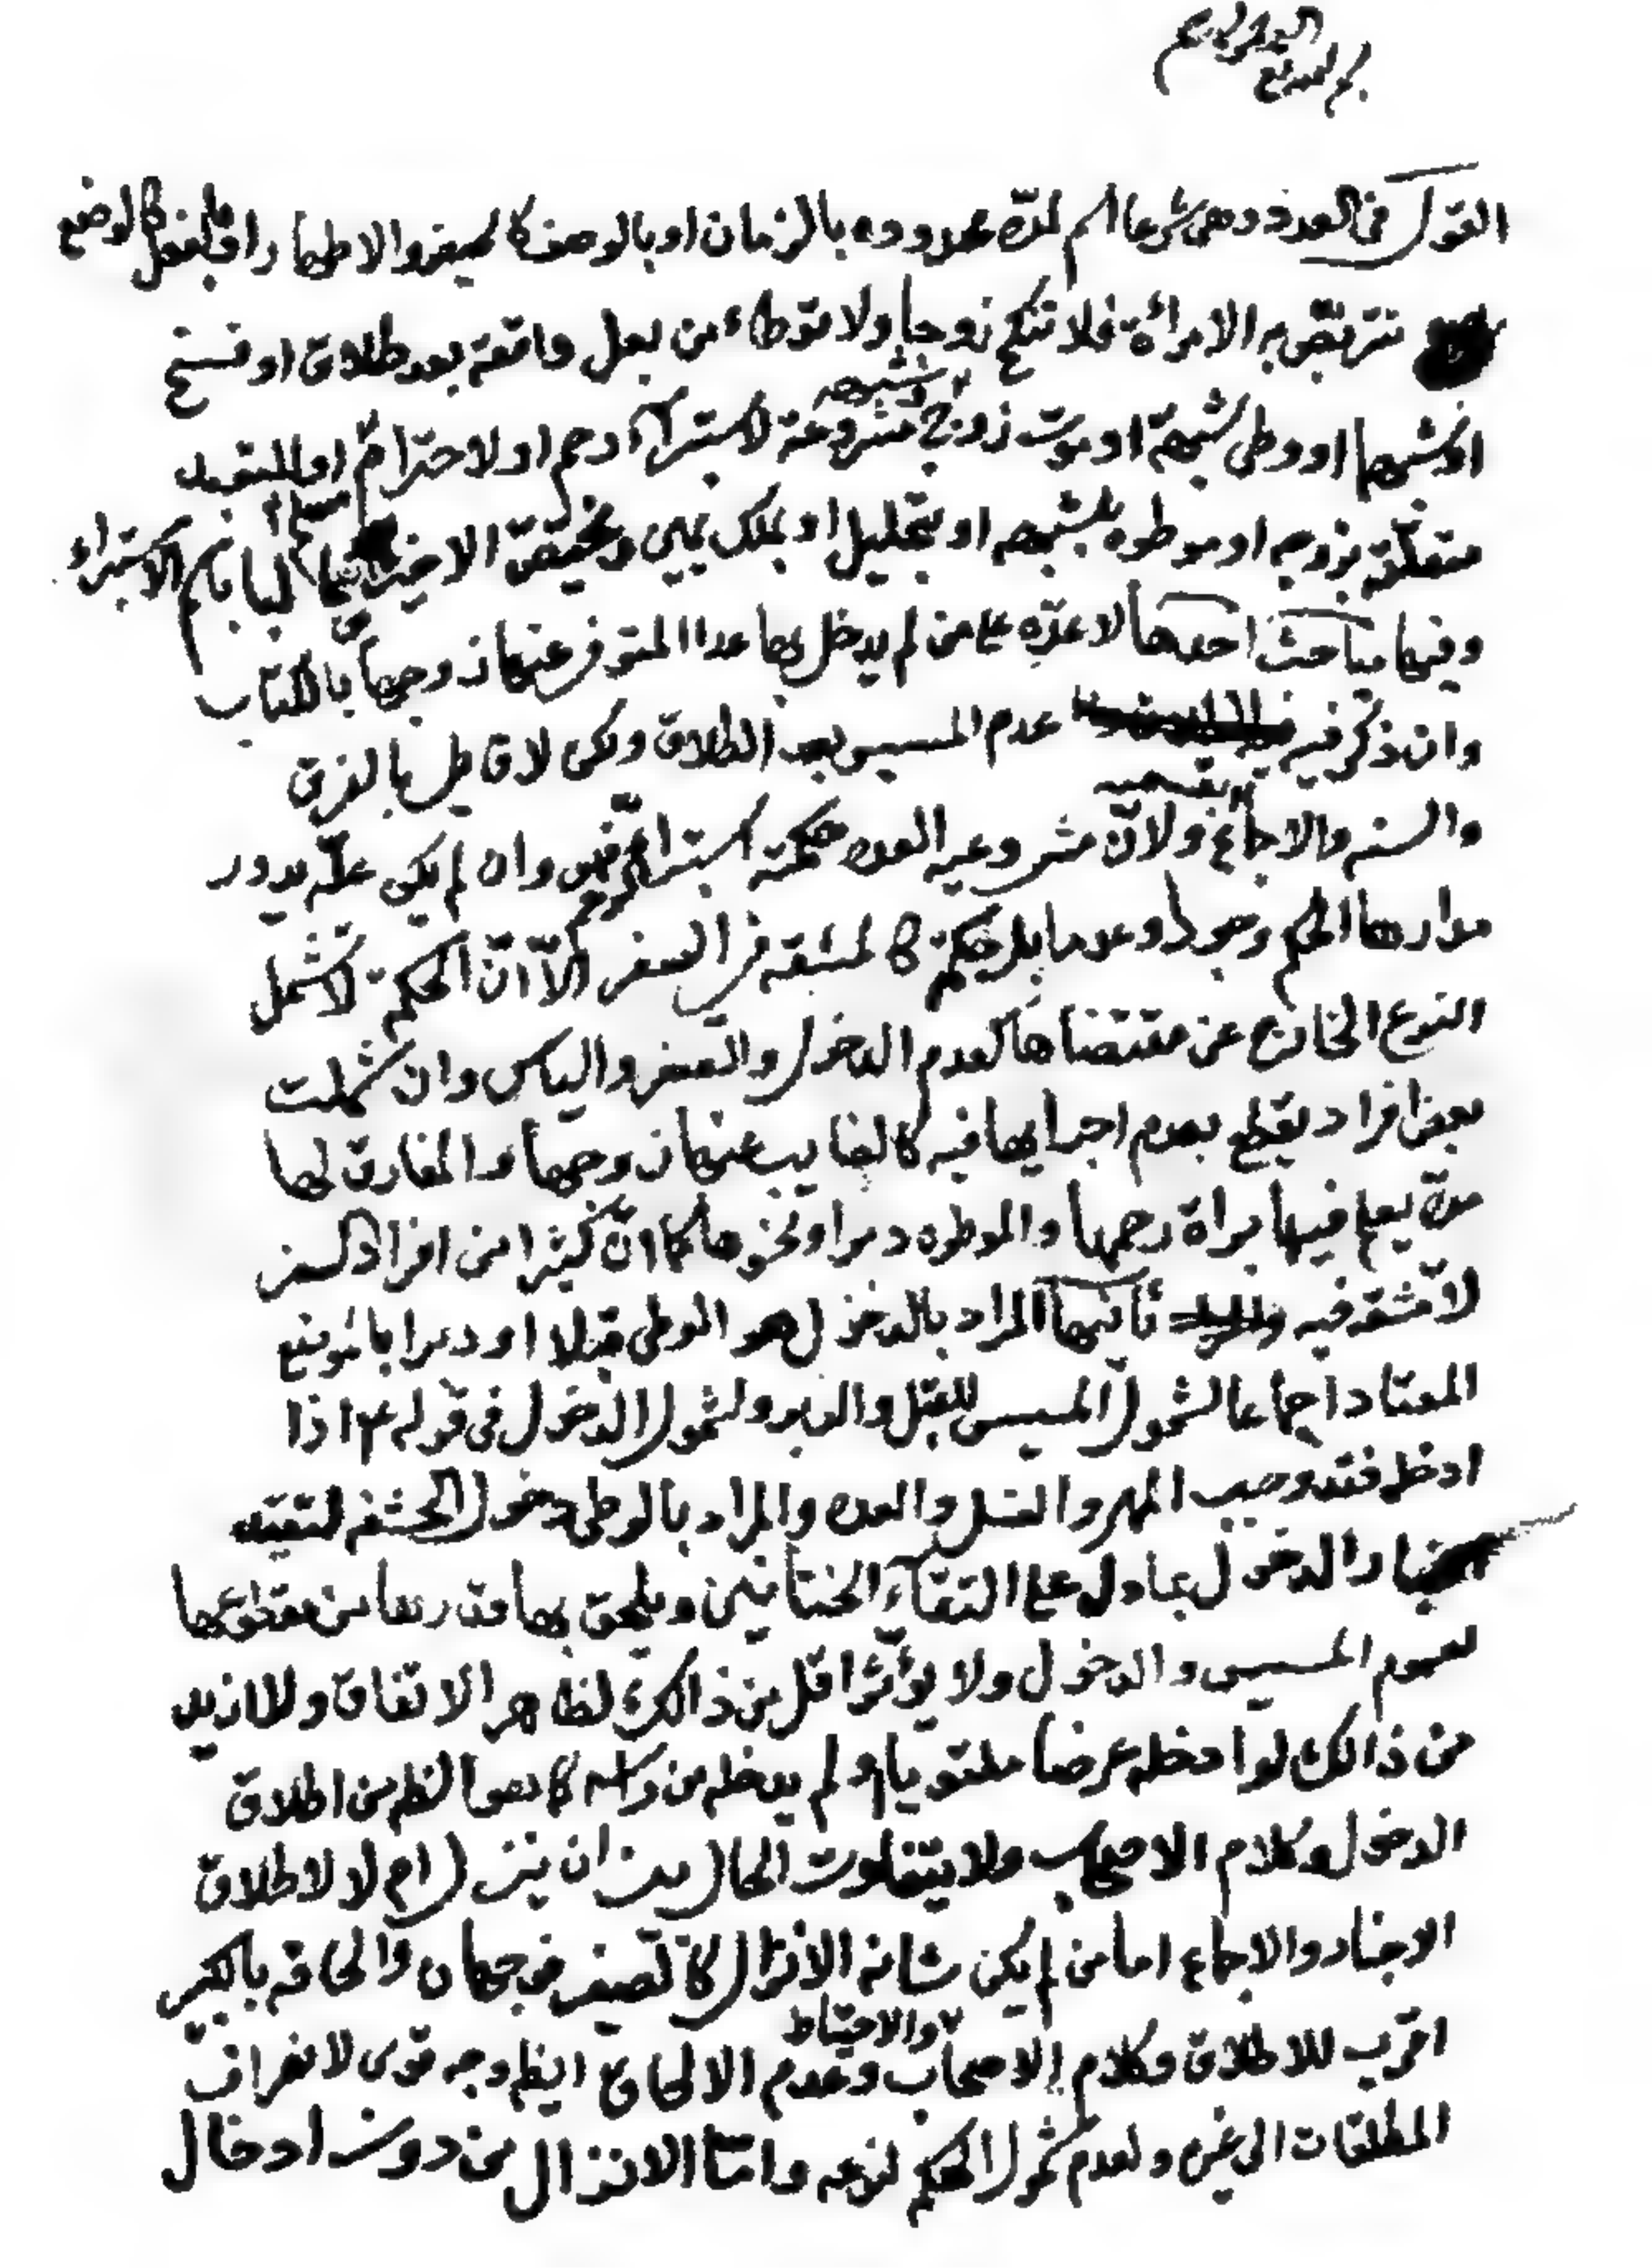 بسم الله الرحمن الرحيم
القول في العدد وهي شرعا اسم لمدّة محدودة بالزمان او بالوصف كالحيض والاطهار او بالفعل كالوضع
تتربّص به الامرأة فلا تنكح زوجا ولا توطاء من بعل واقعة بعد طلاق او فسخ
او شبههما او وطى شبهة او موت زوج او شبهه مشروعة لاستبراء رحم او لاحترام او للتعبد
متعلّقة بزوجه او موطوه بشبهه او بتحليل او بملك يمين وتخيفة الاخير باسم الاستبراء
وفيها مباحث احدها لا عدّه على من لم يدخل بها عدا المتوفى عنها زوجها بالكتاب
وان ذكر فيه عدم المسيس بعد الطلاق ولكن لا قايل بالفرق
والسنه والاجماع بقسميه ولانّ مشروعيه العده حكمة استبراء الرحم وان لم يكن علّه يدور
مدارها الحكم وجودا وعدما بل حكمة كالمشقه في السفر الّا انّ الحكمة لا تشمل
النوع الخارج عن مقتضاها كعدم الدخول والصغر والياس وان شملت
بعض افراد يقطع بعدم اجرايها فيه كالغايب عنها زوجها والمفارق لها
مدّة يعلم فيها براة رحمها والموطوه دبرا ونحوها كما انّ كثيرا من افراد السفر
لا مشقه فيه ثانيها المراد بالدخول هو الوطى قبلا او دبرا بالموضع
المعتاد اجماعا لشمول المسيس للقبل والدبر ولشمول الدخول في قوله ع اذا
ادخله فقد وجب المهر والغسل والعده والمراد بالوطى دخول الحشفه لتقييد
اخبار الدخول بما دل على التقاء الختانين ويلحق بها قدرها من مقطوعها
لعموم المسيس والدخول ولا يؤثر اقل من ذالك لظاهر الاتفاق ولا ازيد
من ذالك لو ادخله عرضا ملتويا ولم يدخله من راسه كما هو الظ من اطلاق
الدخول وكلام الاصحاب ولا يتفاوت الحال بين ان ينزل ام لا لاطلاق
الاخبار والاجماع اما من لم يكن شانه الانزال كالصغير فوجهان والحاقه بالكبير
اقرب للاطلاق وكلام الاصحاب والاحتياط وعدم الالحاق ايضا وجه قوى لانصراف
المطلقات الى غيره ولعدم شمول الحكم لنوعه وامّا الانزال من دون ادخال